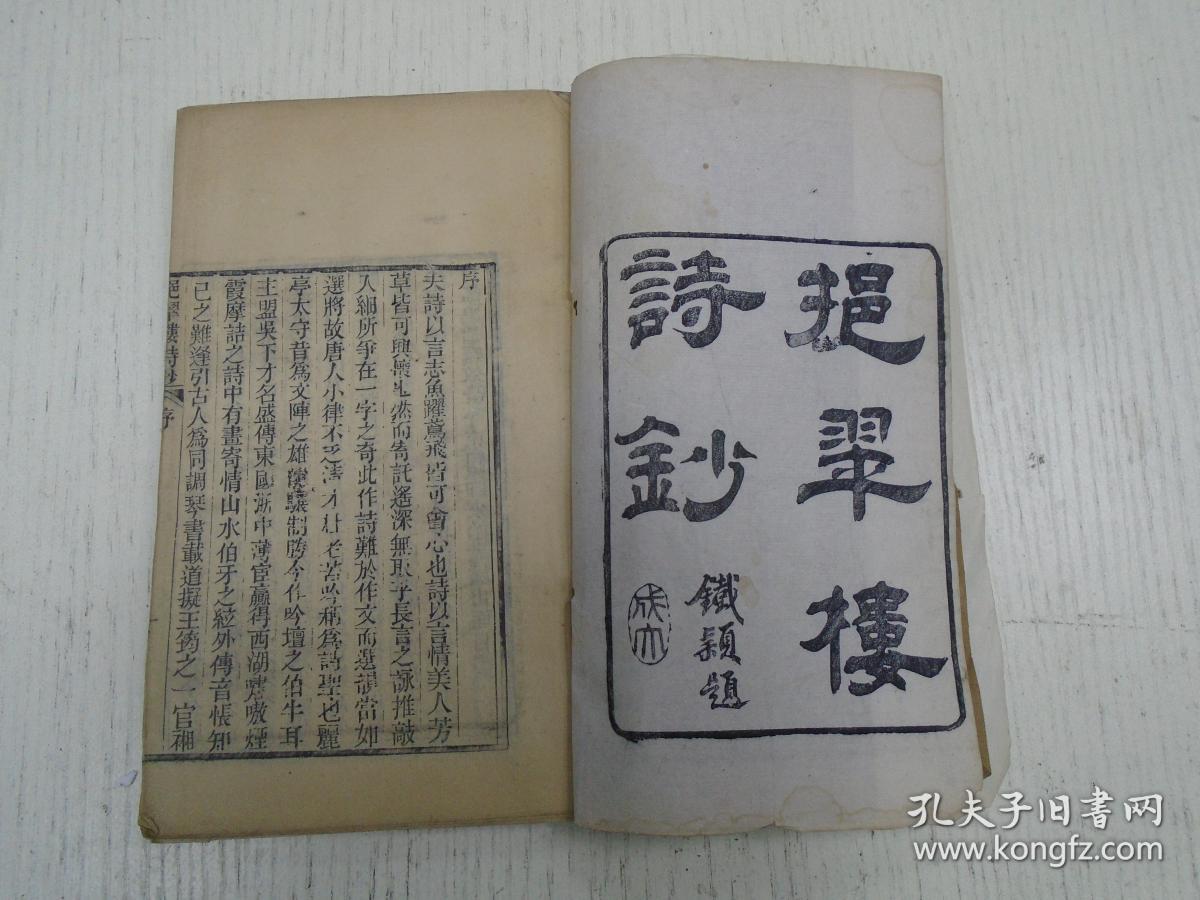 挹翠樓
詩鈔
鐵潁題
序
夫詩以言志魚躍鳶飛皆可會心也詩以言情美人芳
草皆可興懷也然而寄託遙深無取乎長言之詠推敲
入細所爭在一字之奇此作詩難於作文而選韻當如
選將故唐人小律不乏清才杜老苦吟稱為詩聖也麗
亭太守昔為文陣之雄驊驑制勝今作吟壇之伯牛耳
主盟吳下才名盛傳東甌浙中薄宦贏得西湖嘯嗷煙
霞摩詰之詩中有畫寄情山水伯牙之絃外傳音悵知
己之難逢引古人為同調琴書載道擬王筠之一官湘
挹翠樓詩鈔 序
孔夫子旧书网
www.kongfz.com